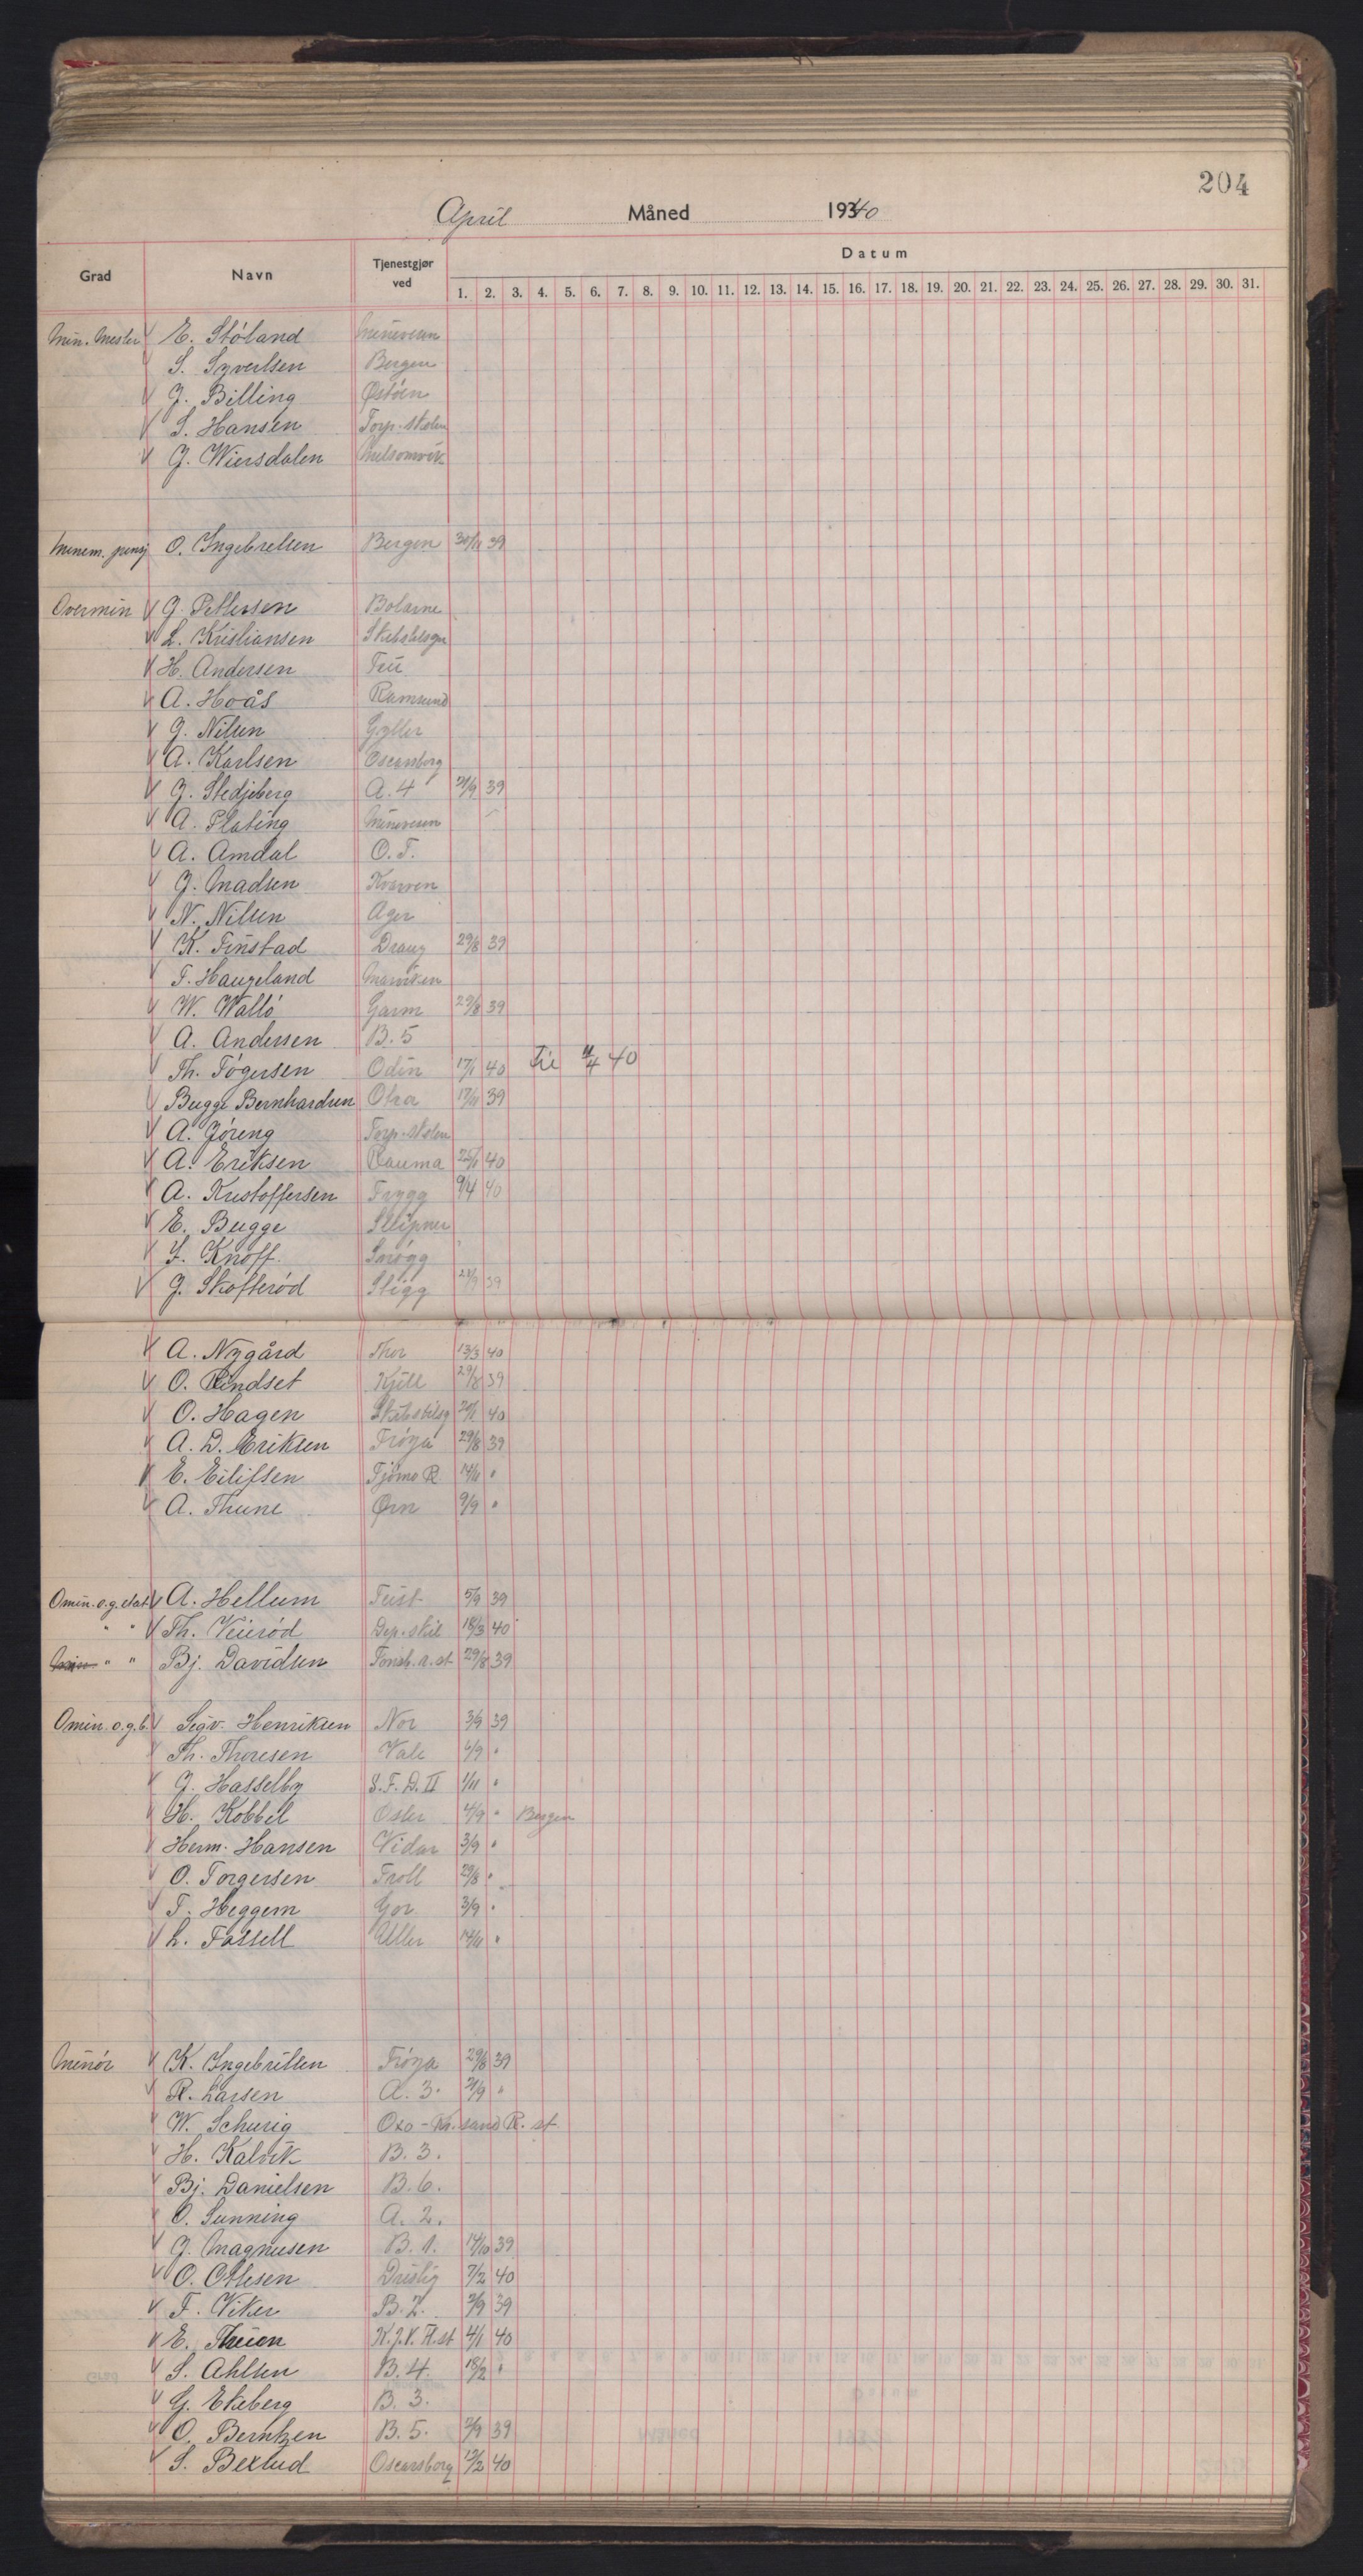 204
April Måned 1940
Grad Navn Tjenestgjør ved Datum
1. 2. 3. 4. 5. 6. 7. 8. 9. 10. 11. 12. 13. 14. 15. 16. 17. 18. 19. 20. 21. 22. 23. 24. 25. 26. 27. 28. 29. 30. 31.
Min. Mester E. Stöland Minevesen
S. Syvertsen Bergen
J. Billing Østöen
S. Hansen Torp. skolen
J. Wiersdalen Melsomvik
Minem. pensj O. Ingebretsen Bergen 30/11 39
Overmin G. Pettersen Bolærne
L. Kristiansen
H. Andersen
A. Hoås Ramsund
J. Nilsen Gyller
A. Karlsen Oscarsborg
J. Stedjeberg A. 4 21/9 39
A. Plating Minevesen
A. Amdal O. T.
J. Madsen Kvarven
N. Nilsen Ager
K. Finstad Draug 29/8 39
T. Haugeland Marviken
W. Wallö Garm 29/8 39
A. Andersen B. 5
Th. Tögersen Odin 17/1 40
Bugge Bernhardsen Otra 17/11 39
A. Jöreng Torp. skolen
A. Eriksen Rauma 25/1 40
A. Kristoffersen Trygg 9/4 40
E. Bugge Sleipner
Knoff Snögg
J. Skofteröd Stegg 39
A. Nygård Thor 13/3 40
O. Rindset Kjell 29/8 39
O. Hagen 40
A. D. Eriksen Fröya 29/8 39
E. Eilifsen Tjömo R 14/11 "
A. Thune Ørn 9/9 "
Omin. o.g. etat A. Hellum Teist 5/9 39
" " Th. Veieröd Dep. skib 18/3 40
" " Bj. Davidsen Tönsb. a. st 29/8 39
Omin. o.g.b. Sigv. Henriksen Nor 3/9 39
Th. Thoresen Vale 4/9 "
J. Hasselby S. F. D. II 1/11 "
H. Kobbel 4/9 " Bergen
Herm. Hansen Vidar 3/9 "
O. Torgersen Troll 29/8 "
T. Heggem Gor 3/9 "
L. Fassell Uller 14/11 "
Minör K. Ingebritsen Fröya 29/8 39
R. Larsen A. 3. 21/9 "
W. Schurig Oxo - Kr.sand R. st
H. Kalvik B. 3.
Bj. Danielsen B. 6.
O. Sunning A. 2.
J. Magnusen B. 1. 14/10 39
O. Ottesen Dristig 7/2 40
F. Viker B. 2. 39
E. Theien K.J.V. R. st 4/1 40
S. Ahlsen B. 4. 18/2 "
G. Ekeberg B. 3.
O. Berntzen B. 5. 39
S. Bexrud Oscarsborg 40